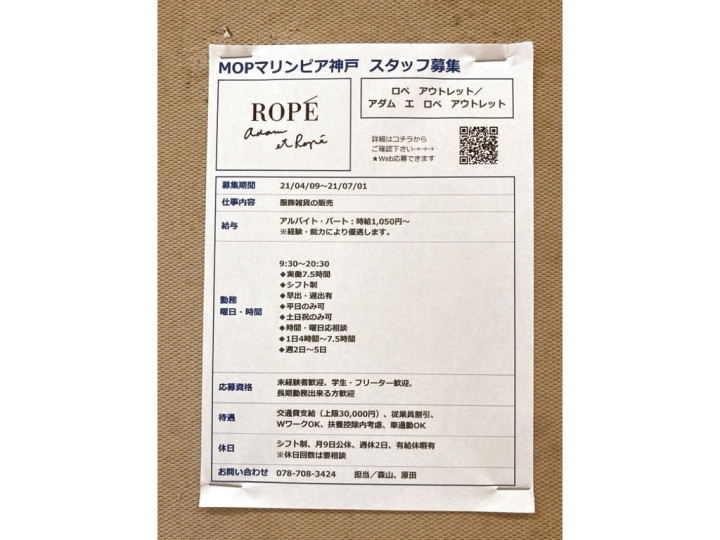 MOPマリンピア神戸 スタッフ募集
ROPÉ
Adam et Ropé
ロペ アウトレット／
アダム エ ロペ アウトレット
詳細はコチラから
ご確認下さい→→→
★Web応募できます
募集期間 21/04/09～21/07/01
仕事内容 服飾雑貨の販売
給与 アルバイト・パート：時給1,050円～
※経験・能力により優遇します。
勤務
曜日・時間
9:30～20:30
◆実働7.5時間
◆シフト制
◆早出・遅出有
◆平日のみ可
◆土日祝のみ可
◆時間・曜日応相談
◆1日4時間～7.5時間
◆週2日～5日
応募資格 未経験者歓迎、学生・フリーター歓迎、
長期勤務出来る方歓迎
待遇 交通費支給（上限30,000円）、従業員割引、
WワークOK、扶養控除内考慮、車通勤OK
休日 シフト制、月9日公休、週休2日、有給休暇有
※休日回数は要相談
お問い合わせ 078-708-3424 担当／森山、原田